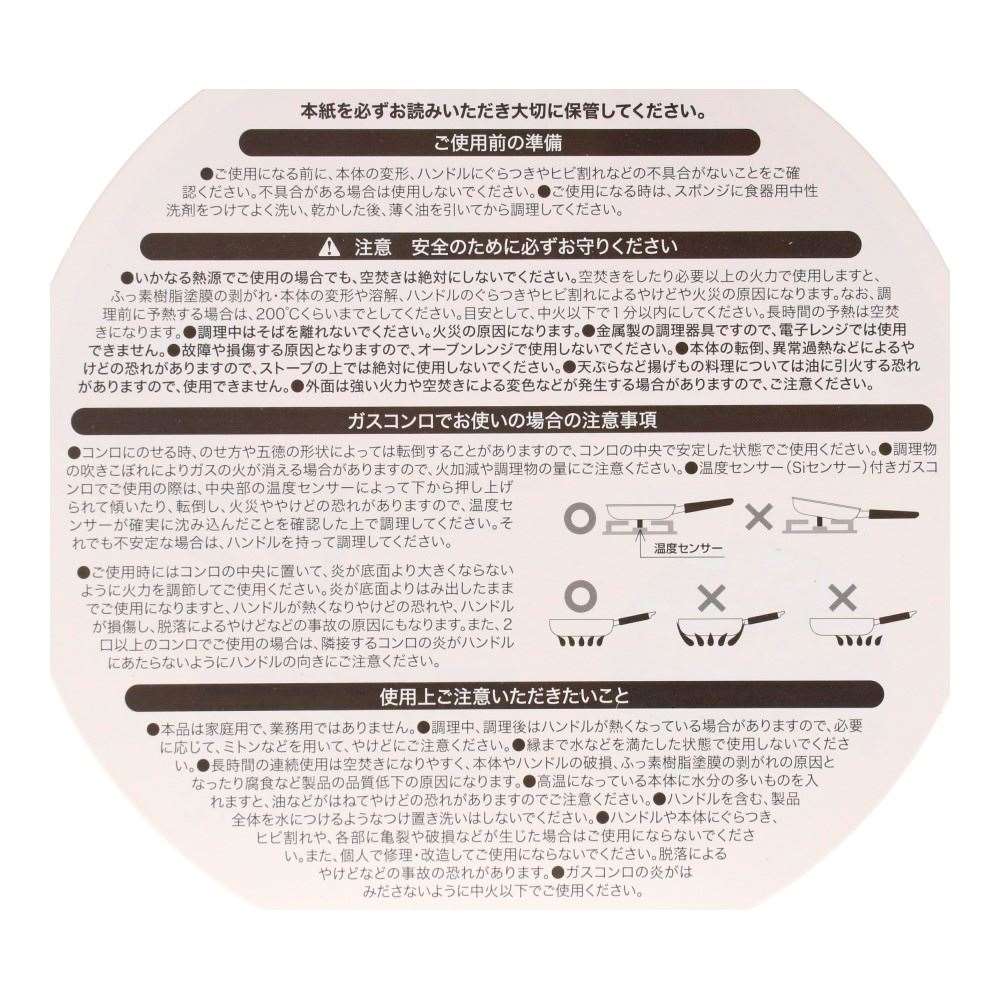 本紙を必ずお読みいただき大切に保管してください。
ご使用前の準備
●ご使用になる前に、本体の変形、ハンドルにぐらつきやヒビ割れなどの不具合がないことをご確
認ください。不具合がある場合は使用しないでください。●ご使用になる時は、スポンジに食器用中性
洗剤をつけてよく洗い、乾かした後、薄く油を引いてから調理してください。
注意 安全のために必ずお守りください
●いかなる熱源でご使用の場合でも、空焚きは絶対にしないでください。空焚きをしたり必要以上の火力で使用しますと、
ふっ素樹脂塗膜の剥がれ・本体の変形や溶解、ハンドルのぐらつきやヒビ割れによるやけどや火災の原因になります。なお、調
理前に予熱する場合は、200℃くらいまでとしてください。目安として、中火以下で1分以内にしてください。長時間の予熱は空焚
きになります。●調理中はそばを離れないでください。火災の原因になります。●金属製の調理器具ですので、電子レンジでは使用
できません。●故障や損傷する原因となりますので、オーブンレンジで使用しないでください。●本体の転倒、異常過熱などによるや
けどの恐れがありますので、ストーブの上では絶対に使用しないでください。●天ぷらなど揚げもの料理については油に引火する恐れ
がありますので、使用できません。●外面は強い火力や空焚きによる変色などが発生する場合がありますので、ご注意ください。
ガスコンロでお使いの場合の注意事項
●コンロにのせる時、のせ方や五徳の形状によっては転倒することがありますので、コンロの中央で安定した状態でご使用ください。●調理物
の吹きこぼれによりガスの火が消える場合がありますので、火加減や調理物の量にご注意ください。●温度センサー(Siセンサー)付きガスコ
ンロでご使用の際は、中央部の温度センサーによって下から押し上げ
られて傾いたり、転倒し、火災ややけどの恐れがありますので、温度セ
ンサーが確実に沈み込んだことを確認した上で調理してください。そ
れでも不安定な場合は、ハンドルを持って調理してください。
温度センサー
●ご使用時にはコンロの中央に置いて、炎が底面より大きくならない
ように火力を調節してご使用ください。炎が底面よりはみ出したまま
でご使用になりますと、ハンドルが熱くなりやけどの恐れや、ハンドル
が損傷し、脱落によるやけどなどの事故の原因にもなります。また、2
口以上のコンロでご使用の場合は、隣接するコンロの炎がハンドル
にあたらないようにハンドルの向きにご注意ください。
使用上ご注意いただきたいこと
●本品は家庭用で、業務用ではありません。●調理中、調理後はハンドルが熱くなっている場合がありますので、必要
に応じて、ミトンなどを用いて、やけどにご注意ください。●縁まで水などを満たした状態で使用しないでくださ
い。●長時間の連続使用は空焚きになりやすく、本体やハンドルの破損、ふっ素樹脂塗膜の剥がれの原因と
なったり腐食など製品の品質低下の原因になります。●高温になっている本体に水分の多いものを入
れますと、油などがはねてやけどの恐れがありますのでご注意ください。●ハンドルを含む、製品
全体を水につけるようなつけ置き洗いはしないでください。●ハンドルや本体にぐらつき、
ヒビ割れや、各部に亀裂や破損などが生じた場合はご使用にならないでくださ
い。また、個人で修理・改造してご使用にならないでください。脱落による
やけどなどの事故の恐れがあります。●ガスコンロの炎がは
みださないように中火以下でご使用ください。